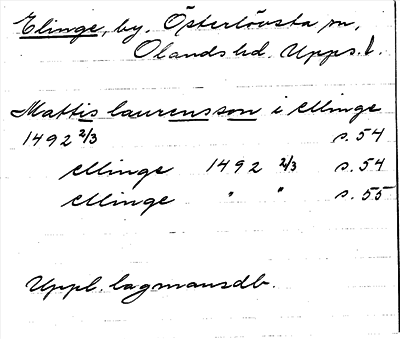 Elinge, by, Österlövsta sn,
Olands hd. Upps. l.
Mattis laurensson i ellinge
1492 2/3 s. 54
ellinge 1492 2/3 s. 54
ellinge " " s. 55
Uppl. lagmansdb.